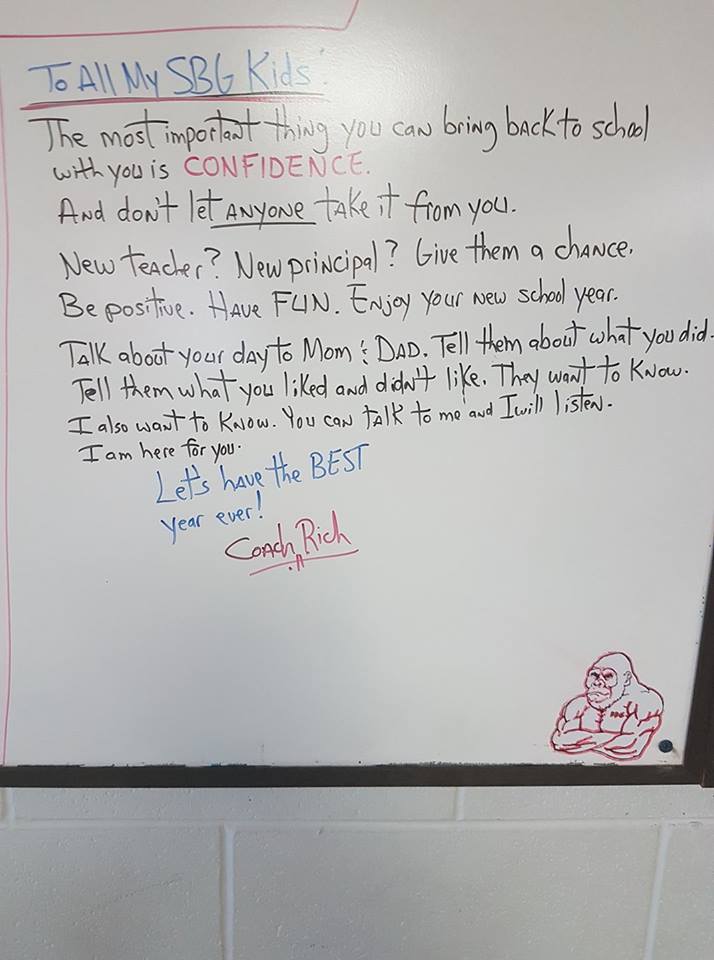 To All My SBG Kids:
The most important thing you can bring back to school
with you is CONFIDENCE.
And don't let ANYONE take it from you.
New teacher? New principal? Give them a chance.
Be positive. Have FUN. Enjoy your new school year.
Talk about your day to Mom & Dad. Tell them about what you did.
Tell them what you liked and didn't like. They want to know.
I also want to know. You can talk to me and I will listen.
I am here for you.
Let's have the BEST
year ever!
Coach Rich